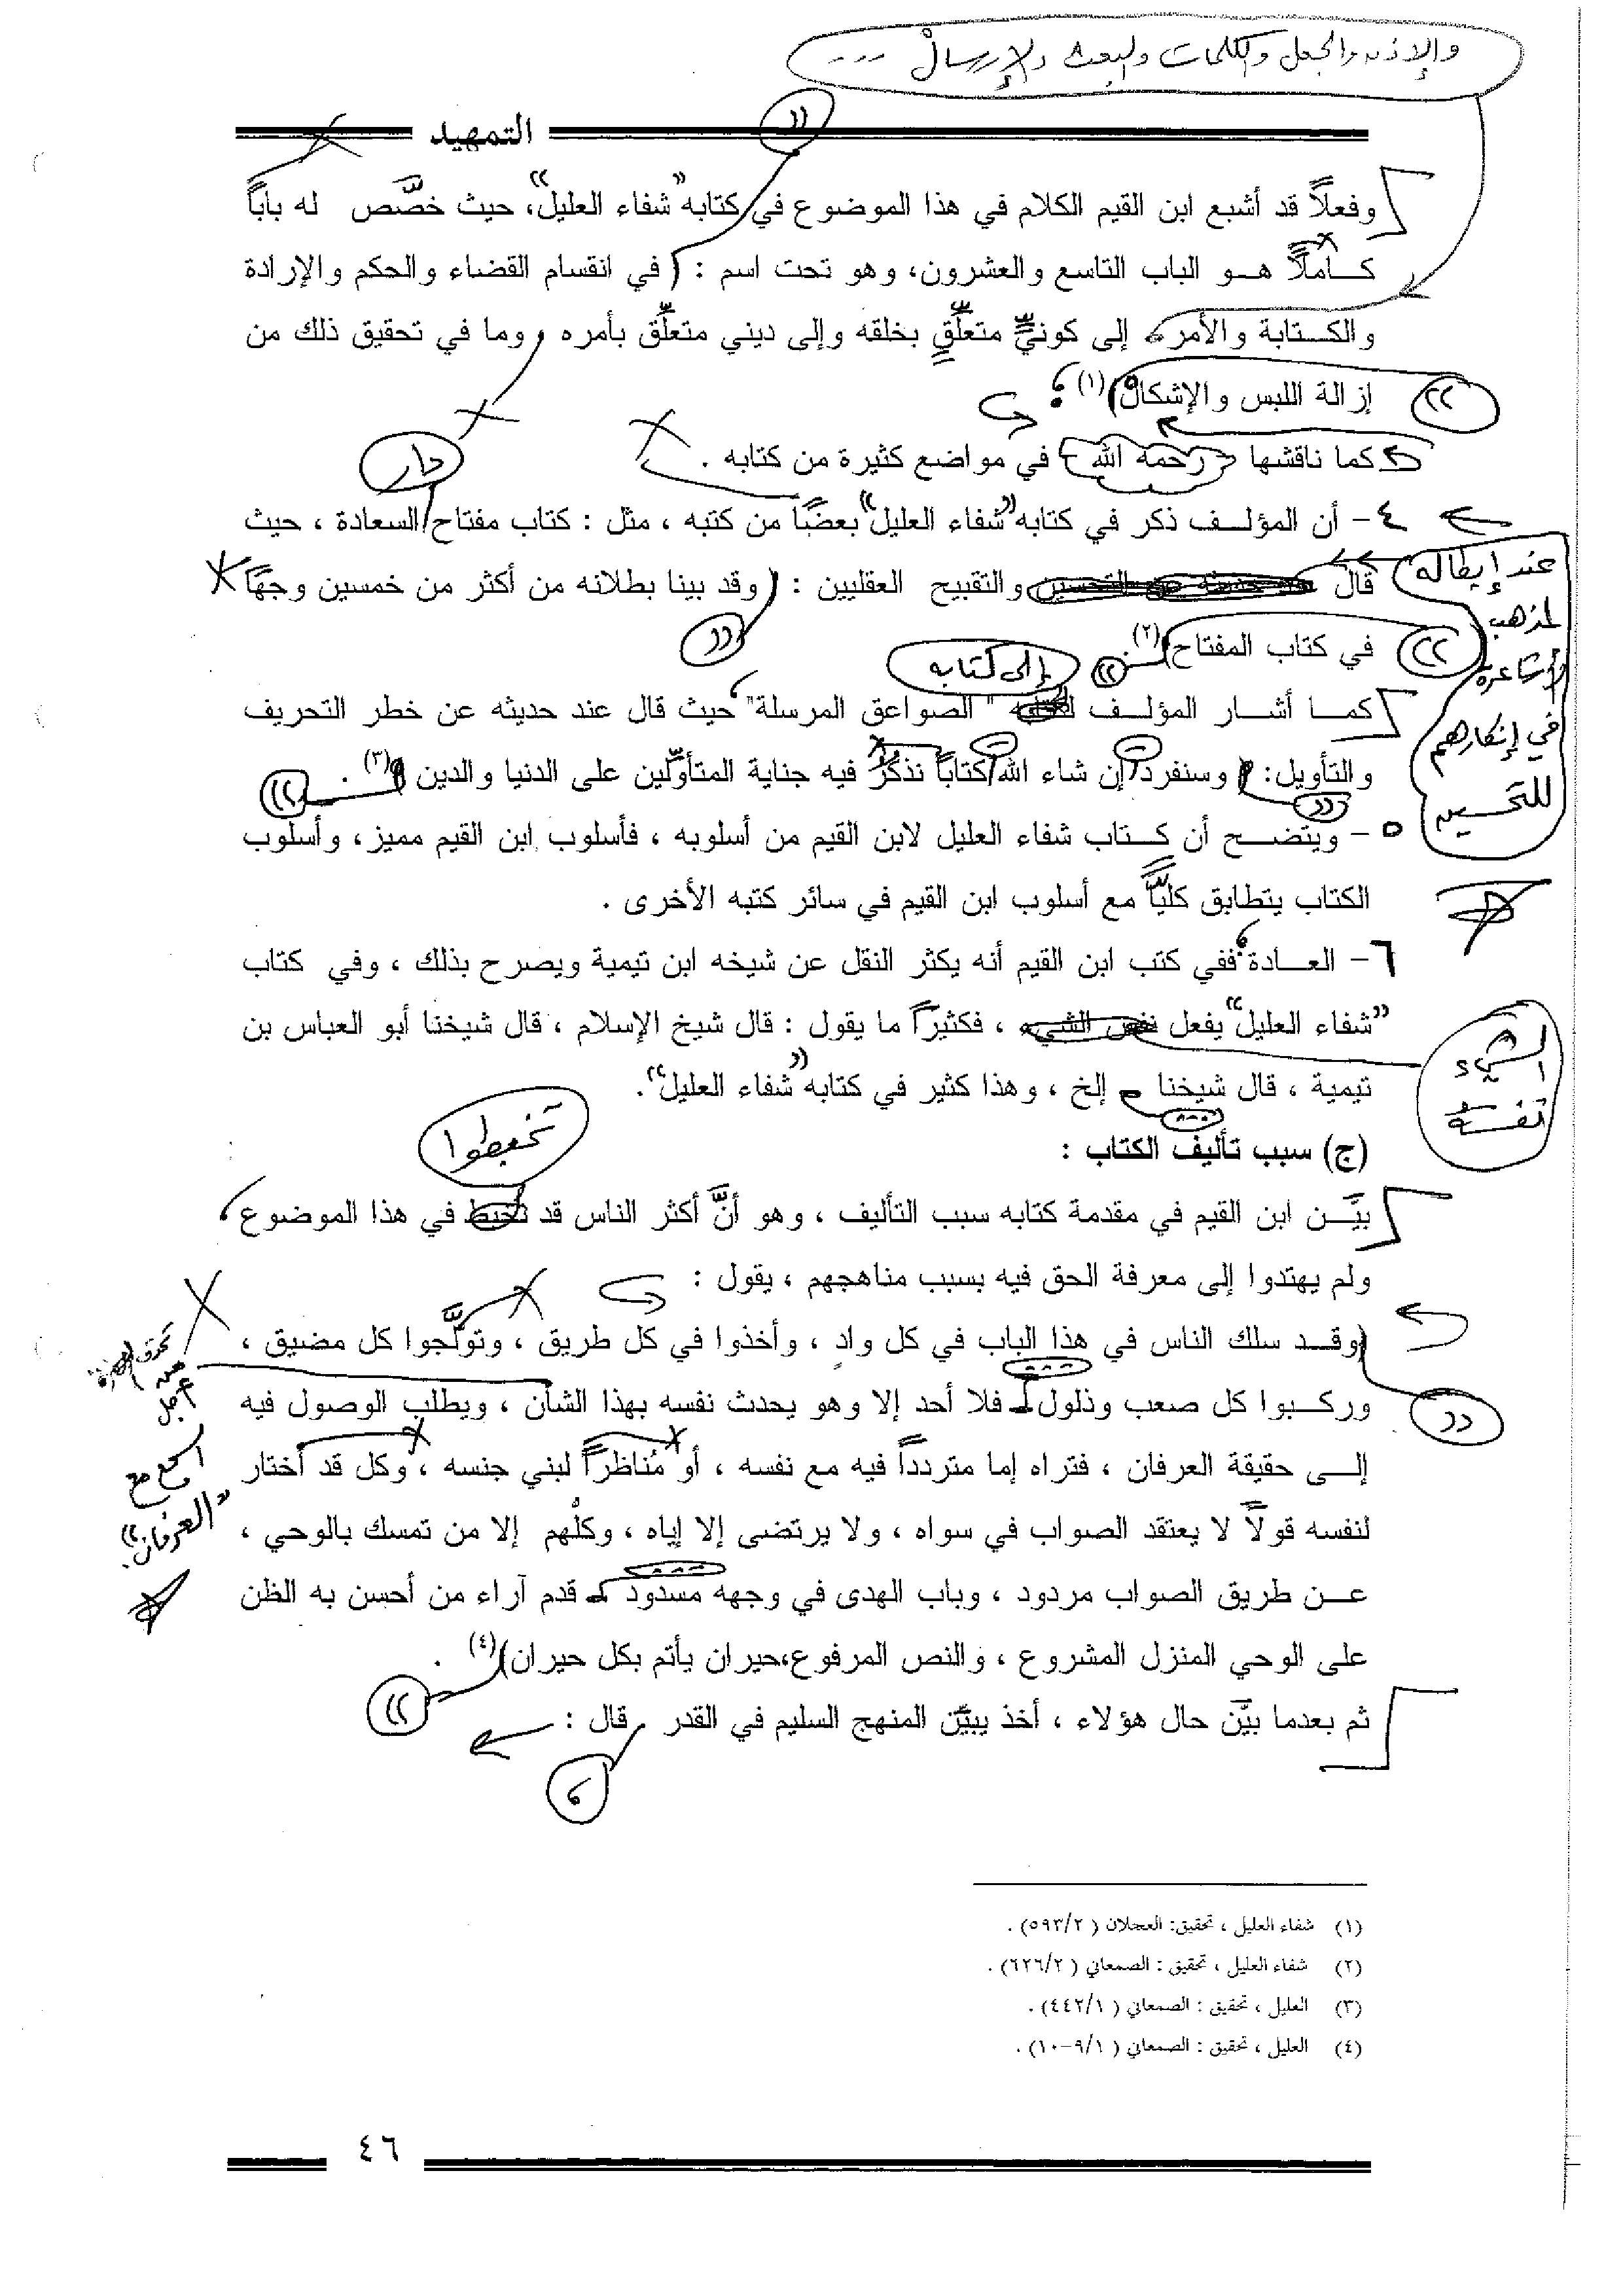 والإذن والجعل والكلمات والبعث والإرسال ...
التمهيد
وفعلاً قد أشبع ابن القيم الكلام في هذا الموضوع في كتابه "شفاء العليل"، حيث خصَّص له باباً
كاملاً هو الباب التاسع والعشرون، وهو تحت اسم : ( في انقسام القضاء والحكم والإرادة
والكتابة والأمر إلى كونيٍّ متعلِّقٍ بخلقه وإلى ديني متعلِّق بأمره ، وما في تحقيق ذلك من
إزالة اللبس والإشكال)(١) .
كما ناقشها رحمه الله في مواضع كثيرة من كتابه .
دار
٤- أن المؤلف ذكر في كتابه "شفاء العليل" بعضًا من كتبه ، مثل : كتاب مفتاح السعادة ، حيث
قال والتقبيح العقليين : ( وقد بينا بطلانه من أكثر من خمسين وجهًا
عند إبطاله
لمذهب
الأشاعرة
في إنكارهم
للتحسين
في كتاب المفتاح)(٢).
إلى كتابه
كما أشار المؤلف " الصواعق المرسلة" حيث قال عند حديثه عن خطر التحريف
والتأويل: ( وسنفرد إن شاء الله كتاباً نذكر فيه جناية المتأوِّلين على الدنيا والدين )(٣) .
٥- ويتضح أن كتاب شفاء العليل لابن القيم من أسلوبه ، فأسلوب ابن القيم مميز، وأسلوب
الكتاب يتطابق كليًّاً مع أسلوب ابن القيم في سائر كتبه الأخرى .
٦- العادة ففي كتب ابن القيم أنه يكثر النقل عن شيخه ابن تيمية ويصرح بذلك ، وفي كتاب
"شفاء العليل" يفعل نفس الشيء ، فكثيراً ما يقول : قال شيخ الإسلام ، قال شيخنا أبو العباس بن
الشيء
نفسه
تيمية ، قال شيخنا إلخ ، وهذا كثير في كتابه "شفاء العليل".
تخبطوا
(ج) سبب تأليف الكتاب :
بيَّن ابن القيم في مقدمة كتابه سبب التأليف ، وهو أنَّ أكثر الناس قد تخبط في هذا الموضوع ،
ولم يهتدوا إلى معرفة الحق فيه بسبب مناهجهم ، يقول :
(وقد سلك الناس في هذا الباب في كل وادٍ ، وأخذوا في كل طريق ، وتولَّجوا كل مضيق ،
وركبوا كل صعب وذلول فلا أحد إلا وهو يحدث نفسه بهذا الشأن ، ويطلب الوصول فيه
إلى حقيقة العرفان ، فتراه إما متردداً فيه مع نفسه ، أو مُناظراً لبني جنسه ، وكل قد أختار
لنفسه قولاً لا يعتقد الصواب في سواه ، ولا يرتضى إلا إياه ، وكلُهم إلا من تمسك بالوحي ،
عن طريق الصواب مردود ، وباب الهدى في وجهه مسدود قدم آراء من أحسن به الظن
على الوحي المنزل المشروع ، والنص المرفوع،حيران يأتم بكل حيران)(٤) .
من أجل
السجع مع
"العرفان".
ثم بعدما بيَّن حال هؤلاء ، أخذ يبيِّن المنهج السليم في القدر ، قال :
(١) شفاء العليل ، تحقيق: العجلان ( ٥٩٣/٢) .
(٢) شفاء العليل ، تحقيق : الصمعاني ( ٦٢٦/٢) .
(٣) العليل ، تحقيق : الصمعاني ( ٤٤٢/١) .
(٤) العليل ، تحقيق : الصمعاني ( ٩/١-١٠) .
٤٦